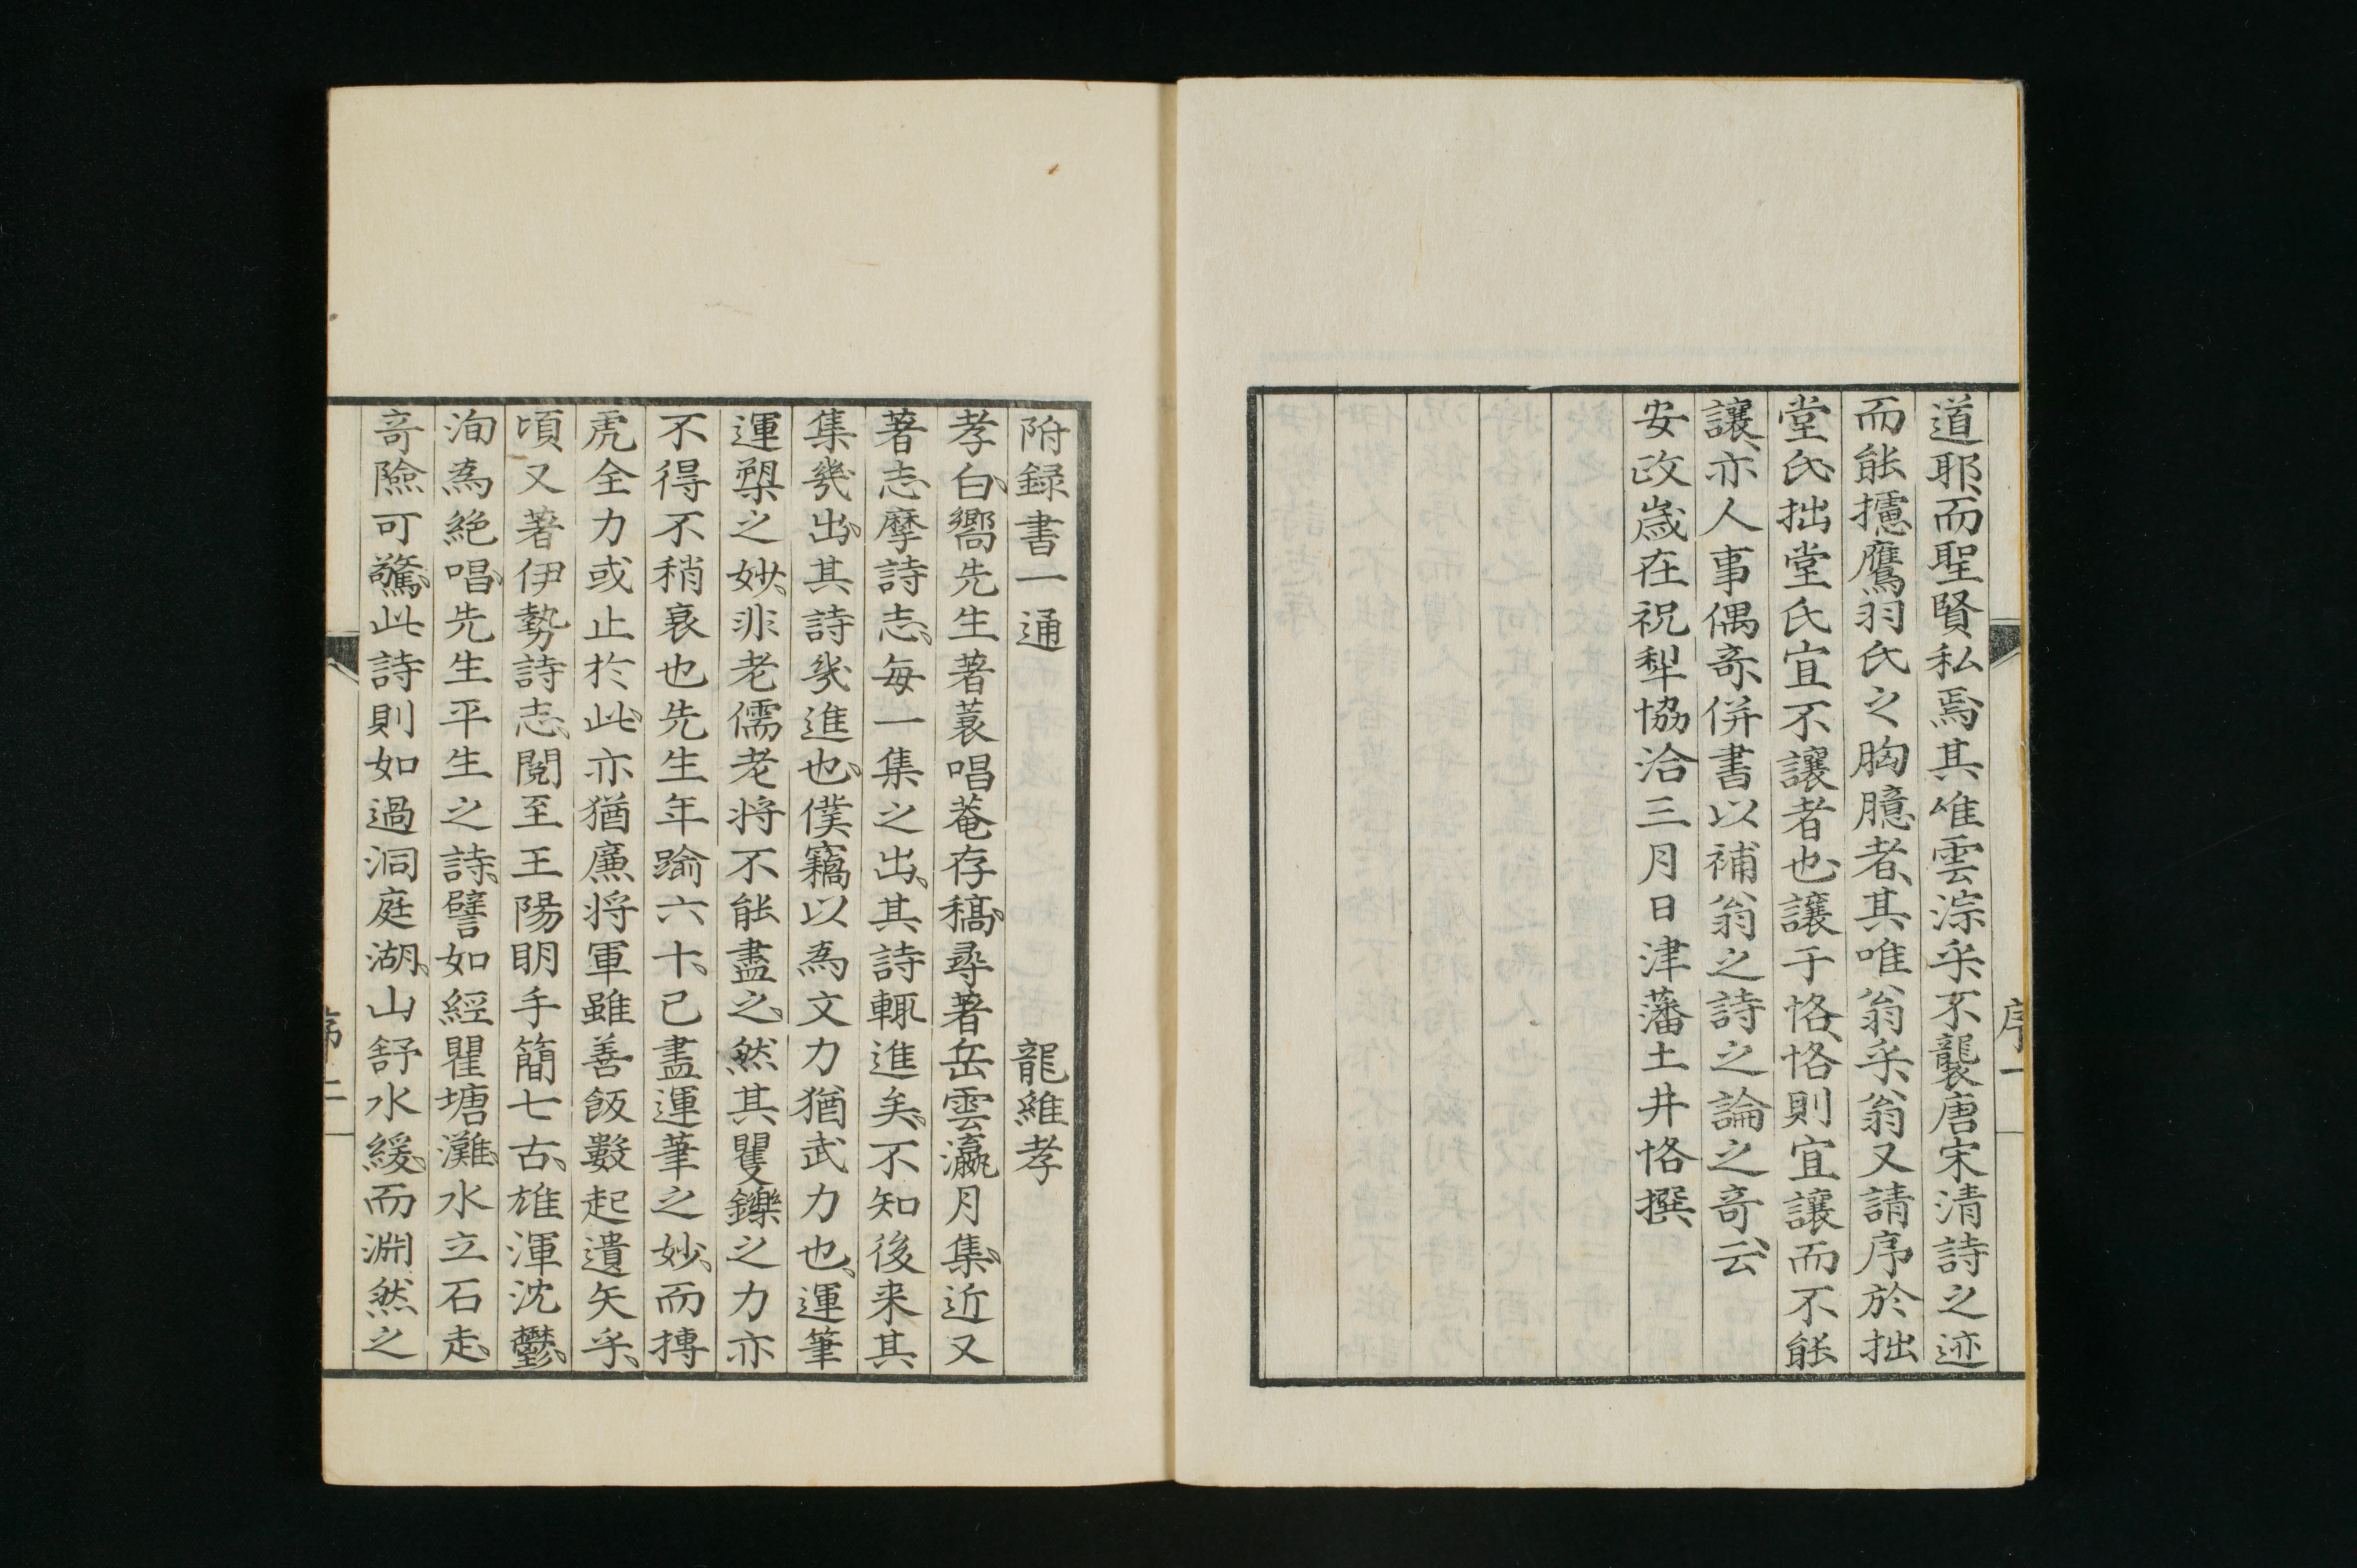 道耶、而聖賢私焉、其唯雲淙乎、不襲唐宋清詩之迹
而能攄鷹羽氏之胸臆者、其唯翁乎、翁又請序於拙
堂氏、拙堂氏宜不讓者也、讓于恪、恪則宜讓而不能
讓、亦人事偶奇、併書以補翁之詩之論之奇云、
安政歲在祝犁協洽三月日津藩土井恪撰、
序一
附録書一通 龍維孝
孝白、嚮先生著蓑唱菴存稿、尋著岳雲瀛月集、近又
著志摩詩志、每一集之出、其詩輒進矣、不知後来其
集幾出、其詩幾進也、僕竊以為文力猶武力也、運筆
運槊之妙、非老儒老将不能盡之、然其矍鑠之力亦
不得不稍衰也、先生年踰六十、已盡運筆之妙、而摶
虎全力或止於此、亦猶廉将軍雖善飯數起遺矢乎、
頃又著伊勢詩志、閱至王陽明手簡七古、雄渾沈鬱、
洵為絕唱、先生平生之詩、譬如經瞿塘灘、水立石走、
奇險可驚、此詩則如過洞庭湖、山舒水緩、而淵然之
序二